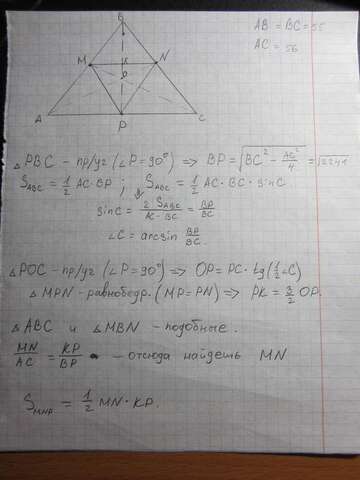 B
AB = BC = 55
AC = 56
M
K
N
O
A
P
C
△ PBC - пр/уг (∠P = 90°) ⇒ BP = √(BC² - AC²/4) = √2241
S_ABC = 1/2 AC · BP ; S_ABC = 1/2 AC · BC · sin C
sin C = 2 S_ABC / AC · BC = BP / BC
∠C = arcsin BP / BC.
△ POC - пр/уг (∠P = 90°) ⇒ OP = PC · tg(1/2 ∠C)
△ MPN - равнобедр. (MP = PN) ⇒ PK = 3/2 OP.
△ ABC и △ MBN - подобные.
MN / AC = KP / BP - отсюда найдешь MN
S_MNP = 1/2 MN · KP.